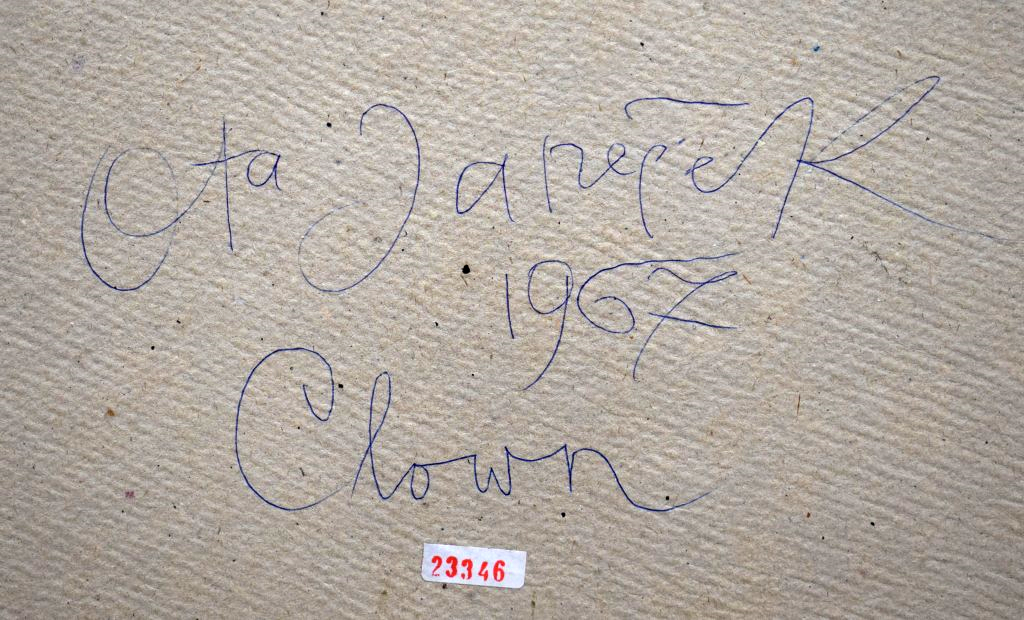 Ota Janeček
1967
Clown
23346